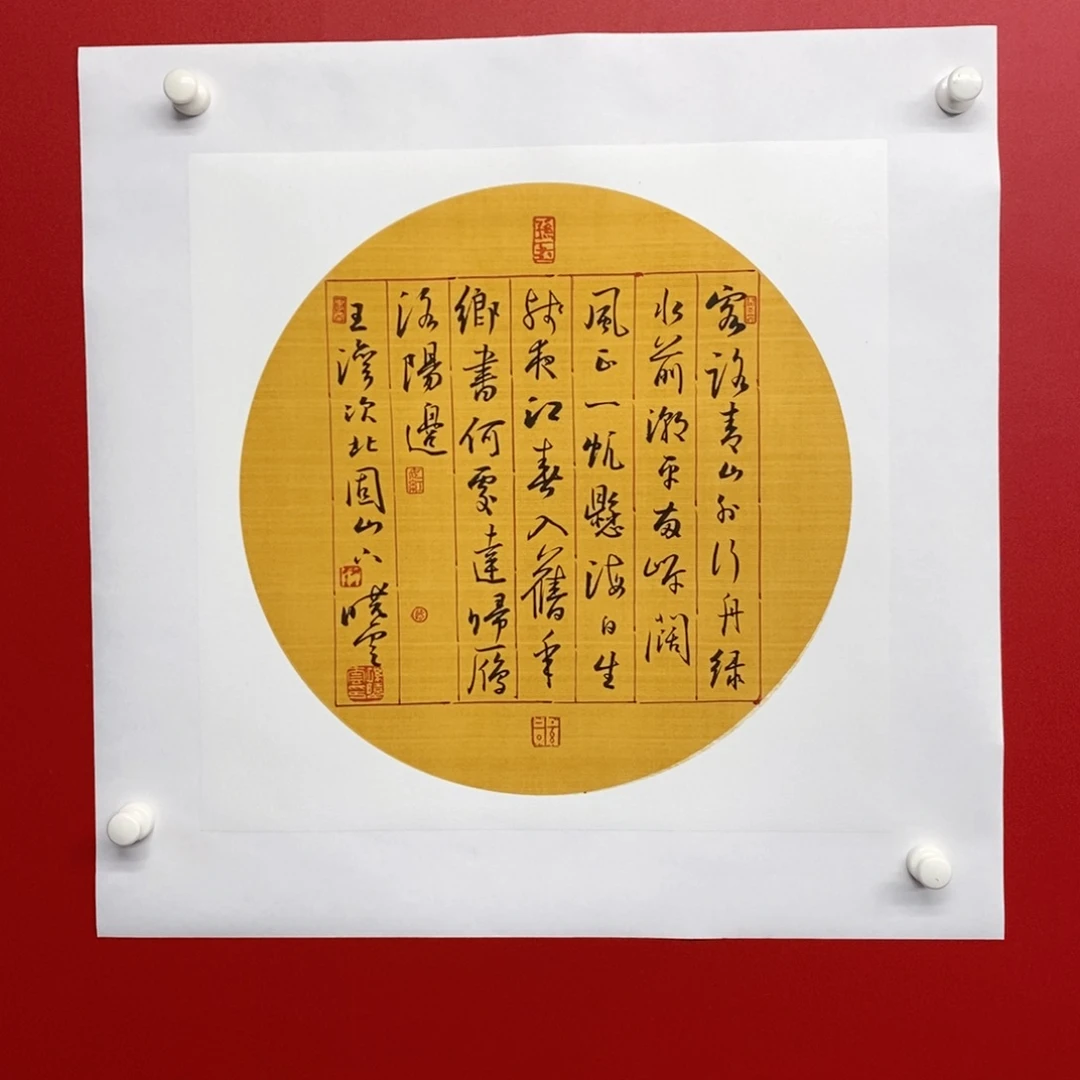 客路青山外行舟緑
水前潮平兩岸闊
風正一帆懸海日生
殘夜江春入舊年
鄉書何處達歸鴈
洛陽邊
王灣次北固山下 曉雲